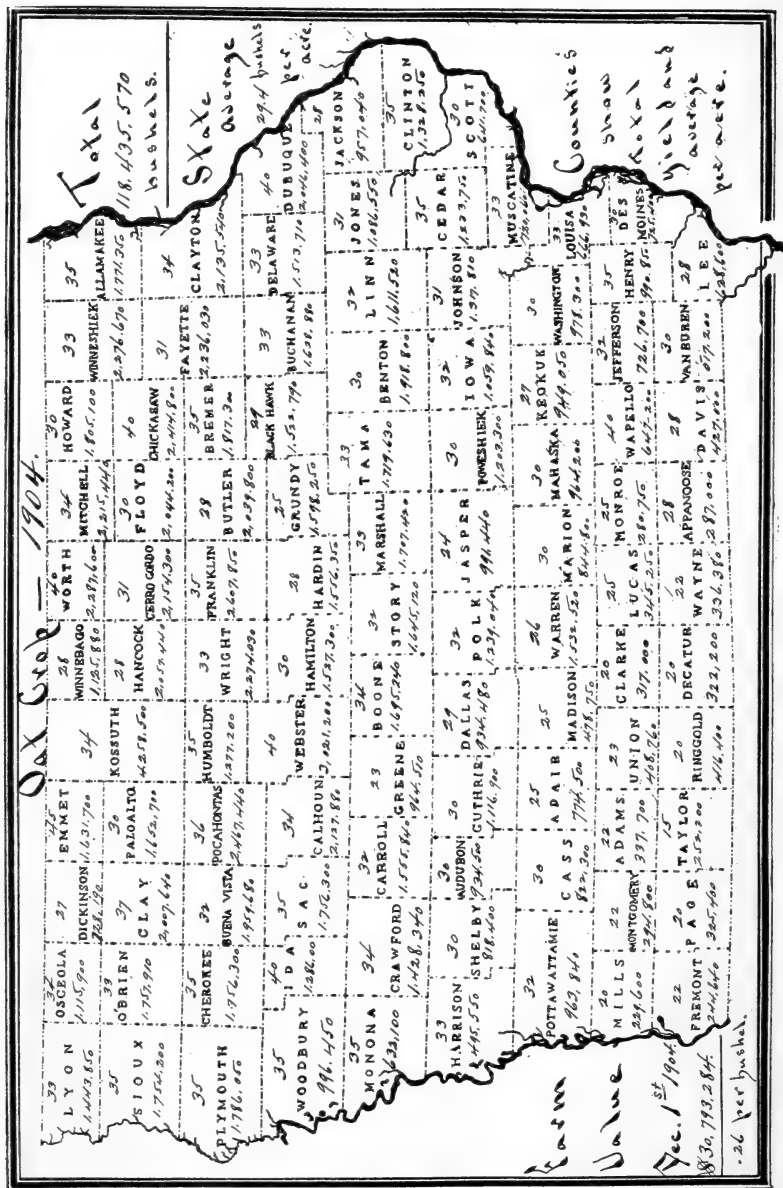 Oat Crop — 1904.
Total
118,435,570
bushels.
State
average
29.4 bushels
per
acre.
33
LYON
1,443,850
32
OSCEOLA
1,115,900
27
DICKINSON
728,190
45
EMMET
1,631,700
34
KOSSUTH
4,258,500
28
WINNEBAGO
1,125,880
40
WORTH
2,287,600
34
MITCHELL
2,215,440
30
HOWARD
1,805,100
33
WINNESHIEK
2,276,670
35
ALLAMAKEE
1,771,350
35
SIOUX
1,754,200
33
O'BRIEN
1,759,910
37
CLAY
2,007,640
30
PALO ALTO
1,652,700
28
HANCOCK
2,057,440
31
CERRO GORDO
2,154,300
30
FLOYD
2,044,200
40
CHICKASAW
2,414,800
31
FAYETTE
2,236,030
34
CLAYTON
2,135,540
35
PLYMOUTH
1,786,050
35
CHEROKEE
1,756,300
32
BUENA VISTA
1,959,680
36
POCAHONTAS
2,467,440
35
HUMBOLDT
1,277,200
33
WRIGHT
2,274,030
35
FRANKLIN
2,607,850
38
BUTLER
2,039,800
35
BREMER
1,817,300
35
WOODBURY
996,450
40
IDA
1,286,00
35
SAC
1,756,300
34
CALHOUN
2,127,880
40
WEBSTER
3,021,200
30
HAMILTON
1,527,300
28
HARDIN
1,556,350
25
GRUNDY
1,598,250
29
BLACK HAWK
1,522,790
33
BUCHANAN
1,638,880
33
DELAWARE
1,513,710
40
DUBUQUE
2,046,400
35
MONONA
632,100
34
CRAWFORD
1,428,340
32
CARROLL
1,555,840
23
GREENE
964,510
34
BOONE
1,695,240
32
STORY
1,645,120
33
MARSHALL
1,707,420
33
TAMA
1,719,630
30
BENTON
1,918,800
32
LINN
1,611,520
31
JONES
1,086,550
28
JACKSON
957,040
35
CLINTON
1,328,250
33
HARRISON
495,550
30
SHELBY
818,400
30
AUDUBON
924,500
30
GUTHRIE
1,116,900
29
DALLAS
934,480
32
POLK
1,239,040
24
JASPER
991,440
30
POWESHIEK
1,203,300
32
IOWA
1,059,840
31
JOHNSON
1,297,810
35
CEDAR
1,203,750
30
SCOTT
641,700
33
MUSCATINE
32
POTTAWATTAMIE
963,840
30
CASS
822,300
25
ADAIR
774,500
25
MADISON
478,750
26
WARREN
1,532,520
30
MARION
844,800
30
MAHASKA
964,200
27
KEOKUK
949,050
30
WASHINGTON
978,300
33
LOUISA
20
MILLS
229,600
22
MONTGOMERY
294,800
22
ADAMS
337,700
23
UNION
428,760
20
CLARKE
317,000
25
LUCAS
345,250
25
MONROE
280,750
40
WAPELLO
647,200
32
JEFFERSON
726,700
35
HENRY
30
DES
MOINES
22
FREMONT
244,640
20
PAGE
325,400
15
TAYLOR
252,200
20
RINGGOLD
416,400
20
DECATUR
322,200
22
WAYNE
336,380
28
APPANOOSE
287,000
28
DAVIS
427,000
30
VAN BUREN
28
LEE
628,600
Farm
Value
Dec. 1st 1904.
$30,793,284.
.26 per bushel.
Countie's
show
Total
yield and
average
per acre.